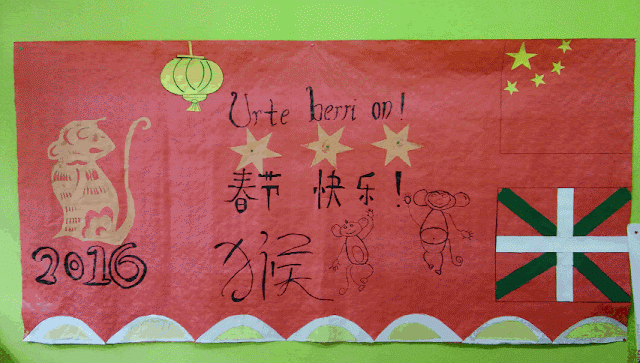 Urte berri on!
春节 快乐!
2016
猴